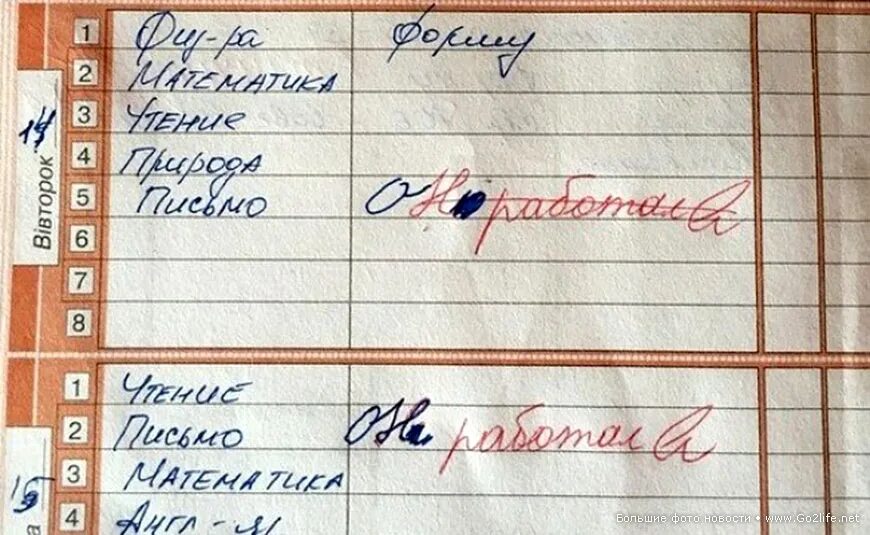 1 Физ-ра форму
2 Математика
3 Чтение
4 Природа
5 Письмо ОНо работал
6
7
8
14 Вівторок
1 Чтение
2 Письмо ОНи работал
3 Математика
4 Англ-я
15
а
Большие фото новости • www.Go2life.net